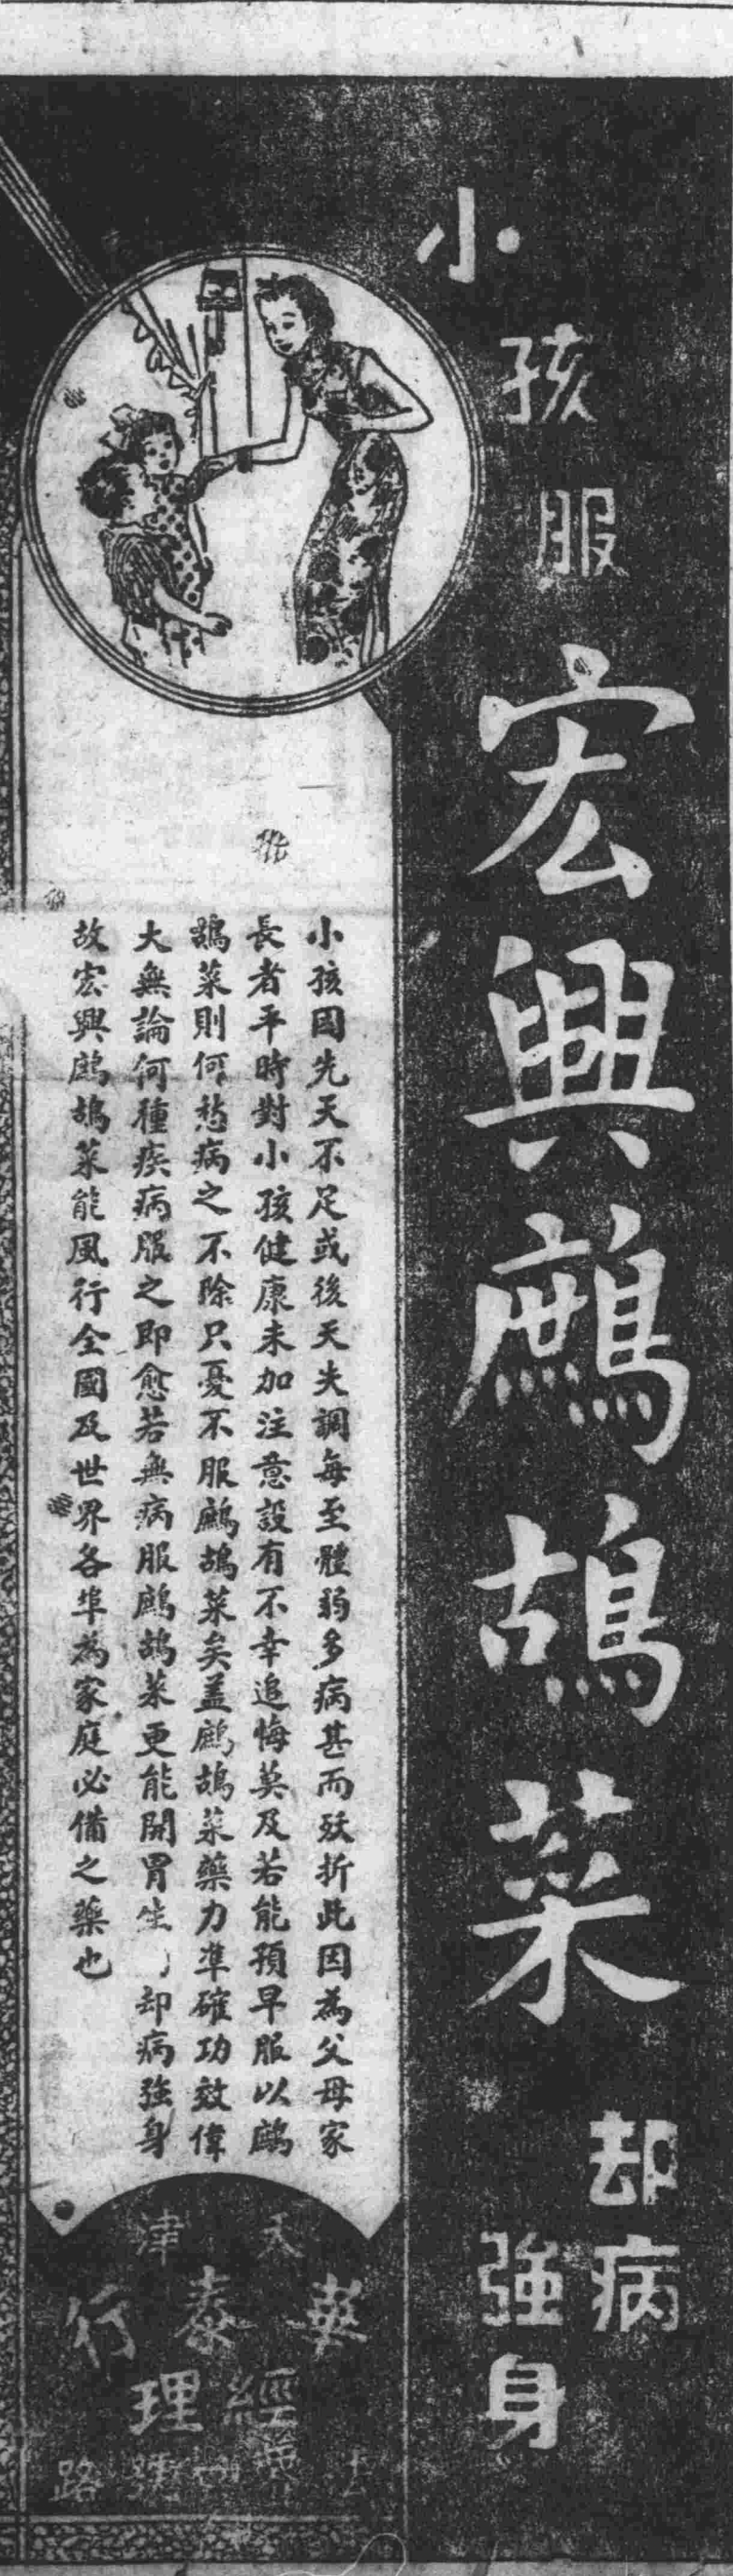 小孩服
宏興鷓鴣菜
却病
強身
小孩因先天不足或後天失調每至體弱多病甚而殀折此因為父母家
長者平時對小孩健康未加注意設有不幸追悔莫及若能預早服以鷓
鴣菜則何愁病之不除只憂不服鷓鴣菜矣蓋鷓鴣菜藥力準確功效偉
大無論何種疾病服之即愈若無病服鷓鴣菜更能開胃生 却病強身
故宏興鷓鴣菜能風行全國及世界各埠為家庭必備之藥也
天津
華泰行
經理
路